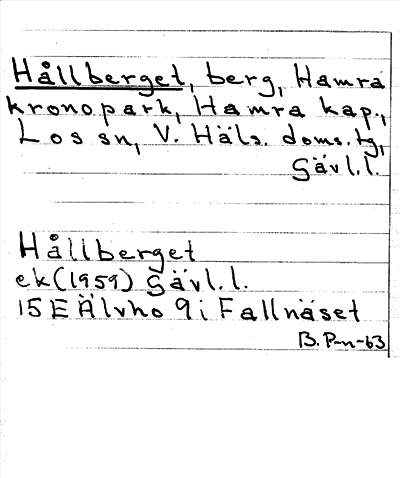 Hållberget, berg, Hamra
kronopark, Hamra kap.,
Los sn, V. Häls. doms.tg,
Gävl.l.
Hållberget
ek(1959) Gävl.l.
15E Älvho 9i Fallnäset
B. P-n-63